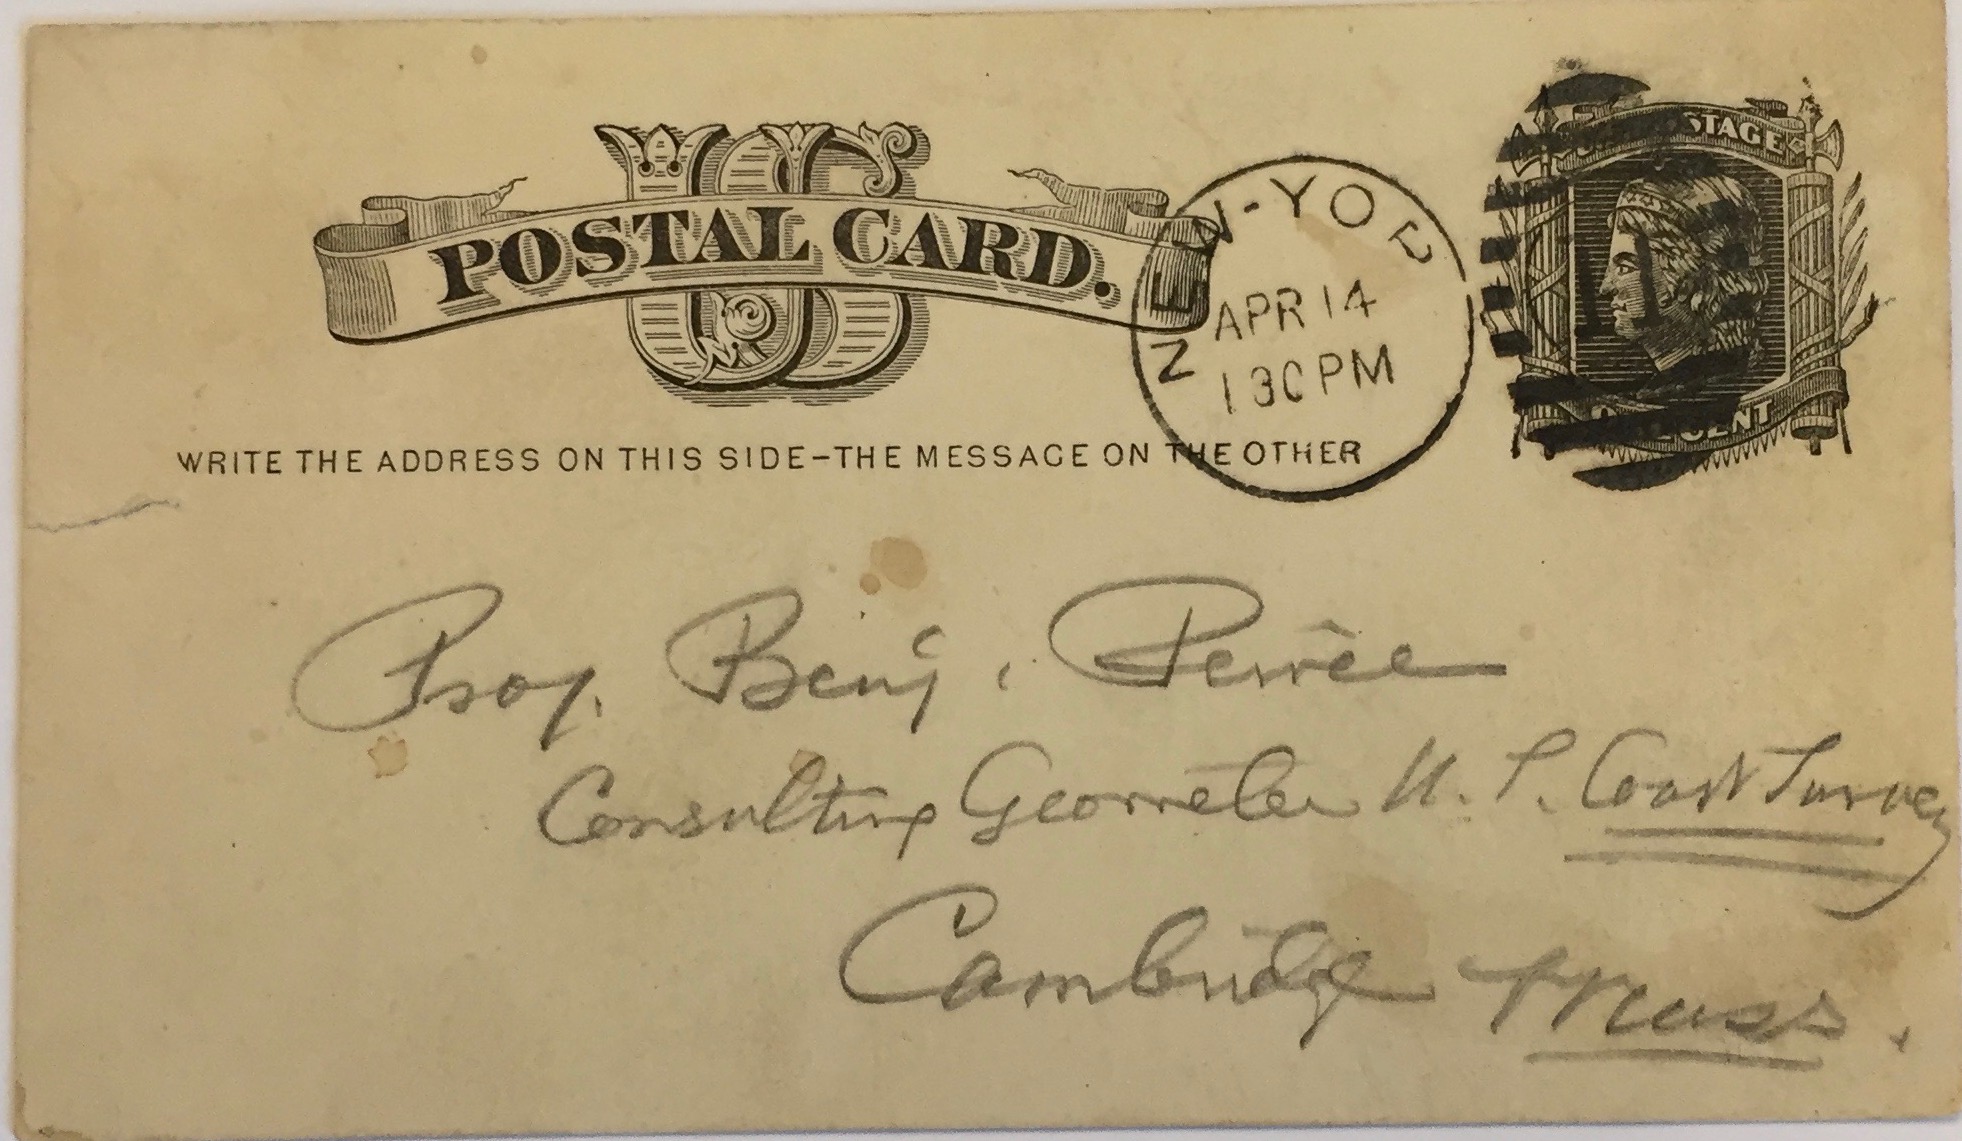 US
POSTAL CARD.
NEW-YOR
APR 14
1 30 PM
U.S. POSTAGE
11
ONE CENT
WRITE THE ADDRESS ON THIS SIDE-THE MESSAGE ON THE OTHER
Prof. Benj. Peirce
Consulting Geometer U. S. Coast Survey
Cambridge Mass.